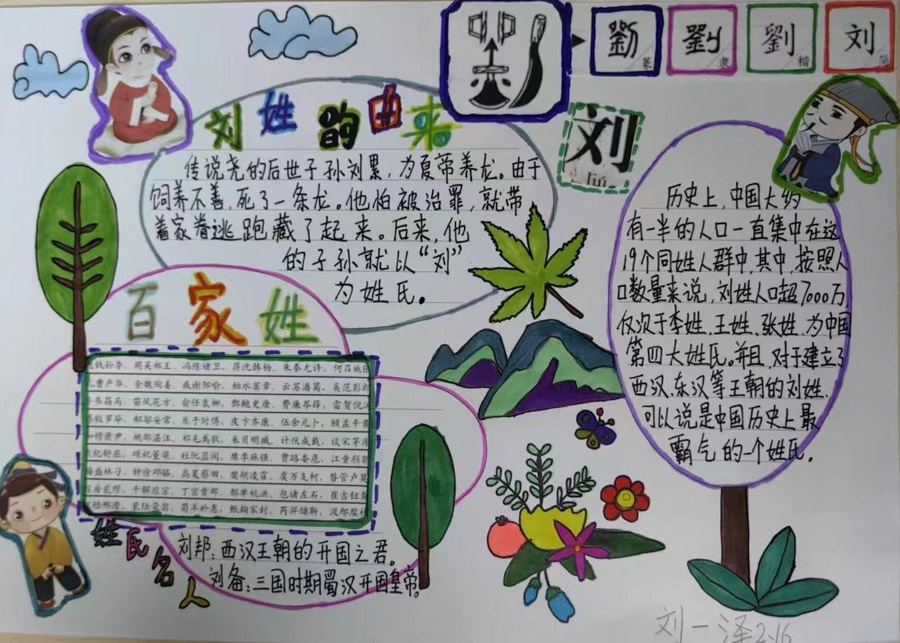 劉 篆
劉 隶
劉 楷
刘 简
刘姓的由来
刘
liú
传说尧的后世子孙刘累，为夏帝养龙。由于
饲养不善，死了一条龙。他怕被治罪，就带
着家眷逃跑藏了起来。后来，他
的子孙就以“刘”
为姓氏。
历史上，中国大约
有一半的人口一直集中在这
19个同姓人群中，其中，按照人
口数量来说，刘姓人口超7000万
仅次于李姓，王姓，张姓，为中国
第四大姓氏。并且，对于建立了
西汉、东汉等王朝的刘姓，
可以说是中国历史上最
霸气的一个姓氏。
百家姓
钱孙李、周吴郑王、冯陈褚卫、蒋沈韩杨、朱秦尤许、何吕施
曹严华、金魏陶姜、戚谢邹喻、柏水窦章、云苏潘葛、奚范彭
韦昌马、苗凤花方、俞任袁柳、酆鲍史唐、费廉岑薛、雷贺倪
殷罗毕、郝邬安常、乐于时傅、皮卞齐康、伍余元卜、顾孟平
穆萧尹、姚邵湛汪、祁毛禹狄、米贝明臧、计伏成戴、谈宋茅
纪舒屈、项祝董梁、杜阮蓝闵、席季麻强、贾路娄危、江童颜
盛林刁、钟徐邱骆、高夏蔡田、樊胡凌霍、虞万支柯、昝管卢
房裘缪、干解应宗、丁宣贲邓、郁单杭洪、包诸左石、崔吉钮
嵇邢滑、裴陆荣翁、荀羊於惠、甄麴家封、芮羿储靳、汲邴糜
姓氏名人
刘邦：西汉王朝的开国之君。
刘备：三国时期蜀汉开国皇帝。
刘一泽2.16